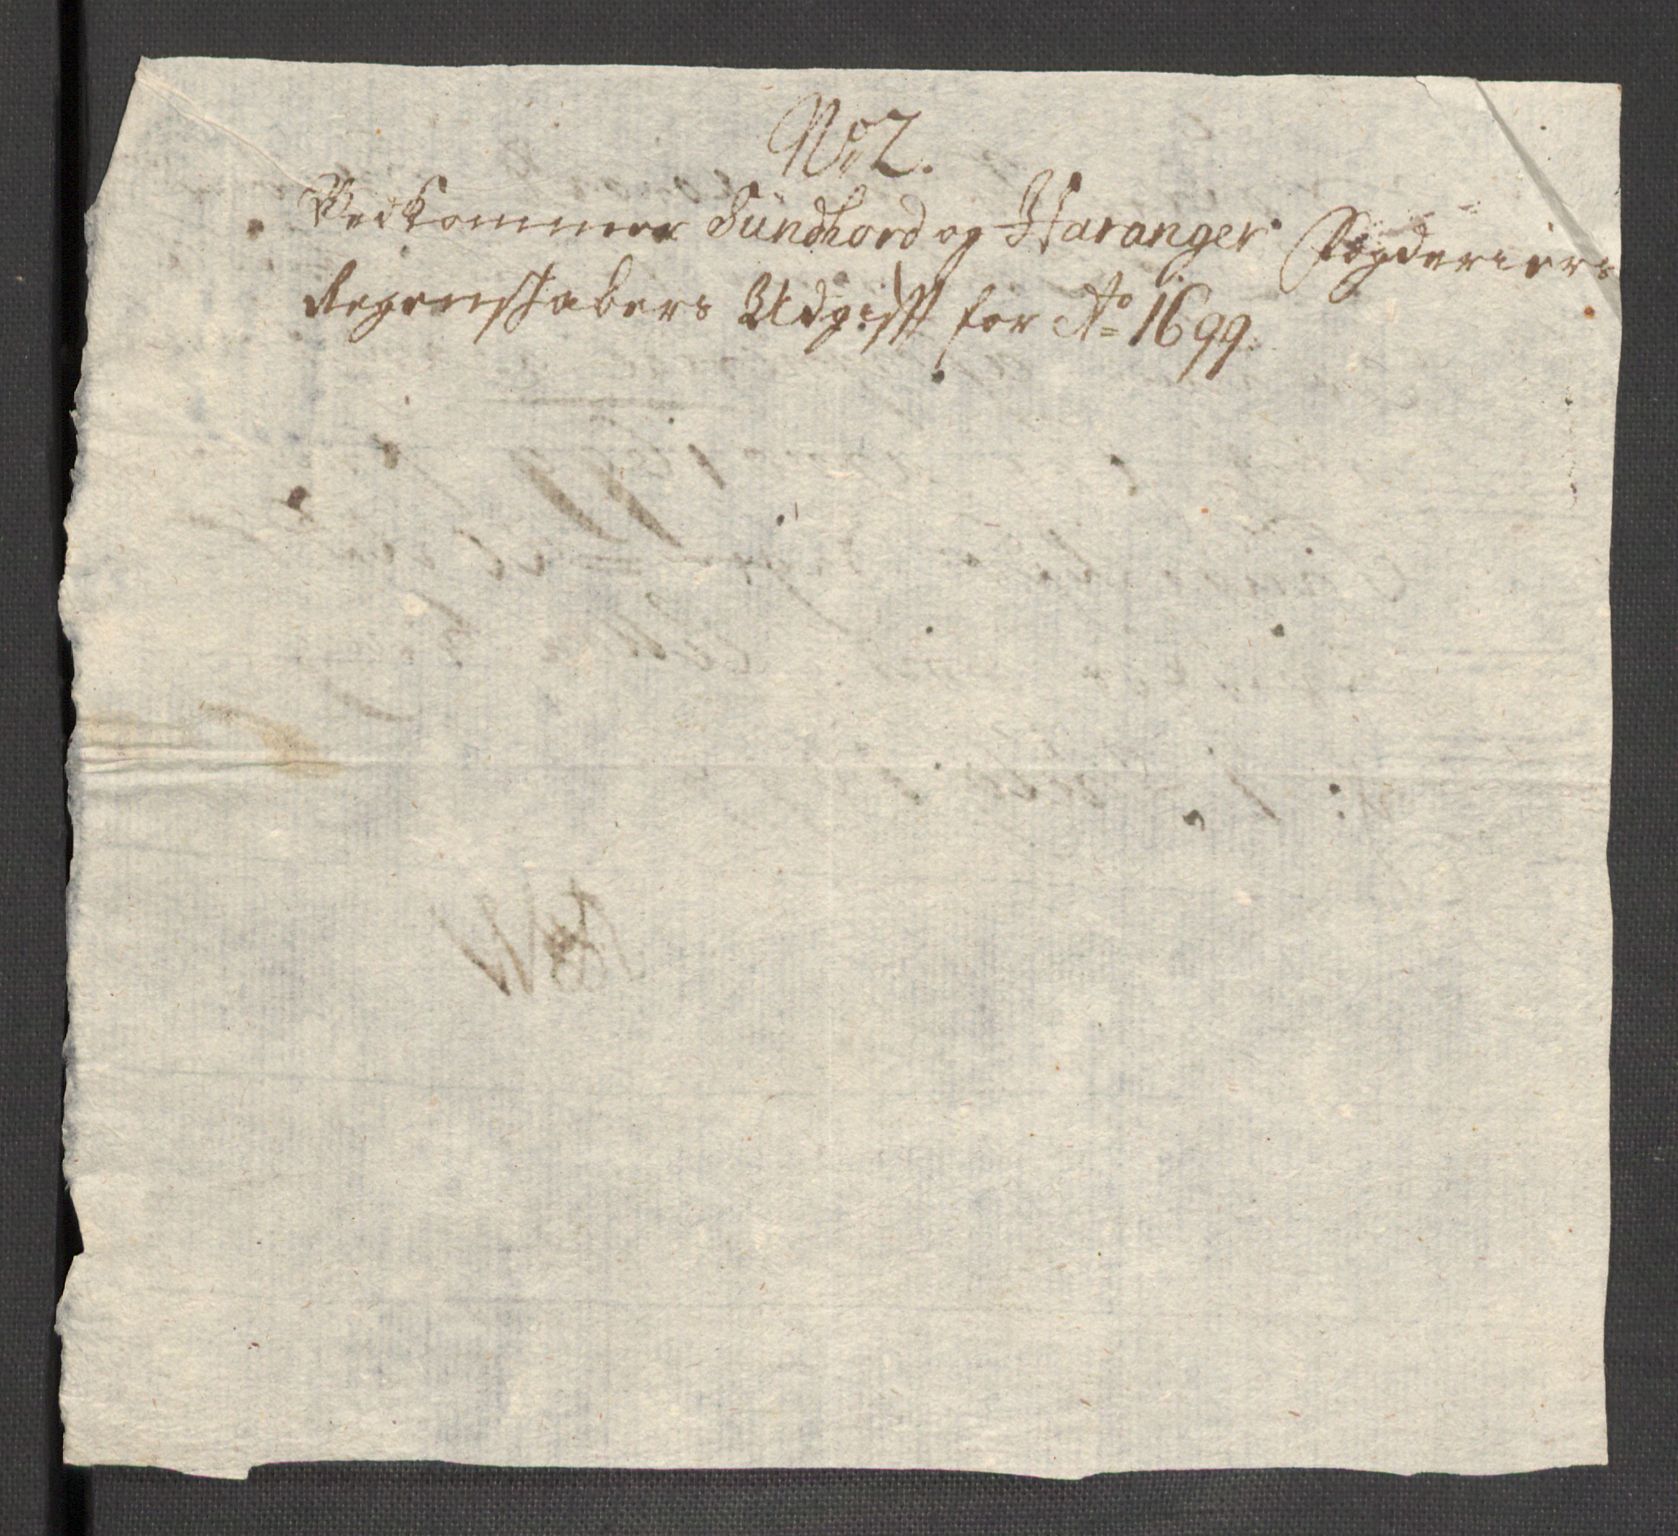 No 2.
Vedkommer Sündhord og Haranger Fogderiers
Regenschabers Udgifft for Ao 1699.